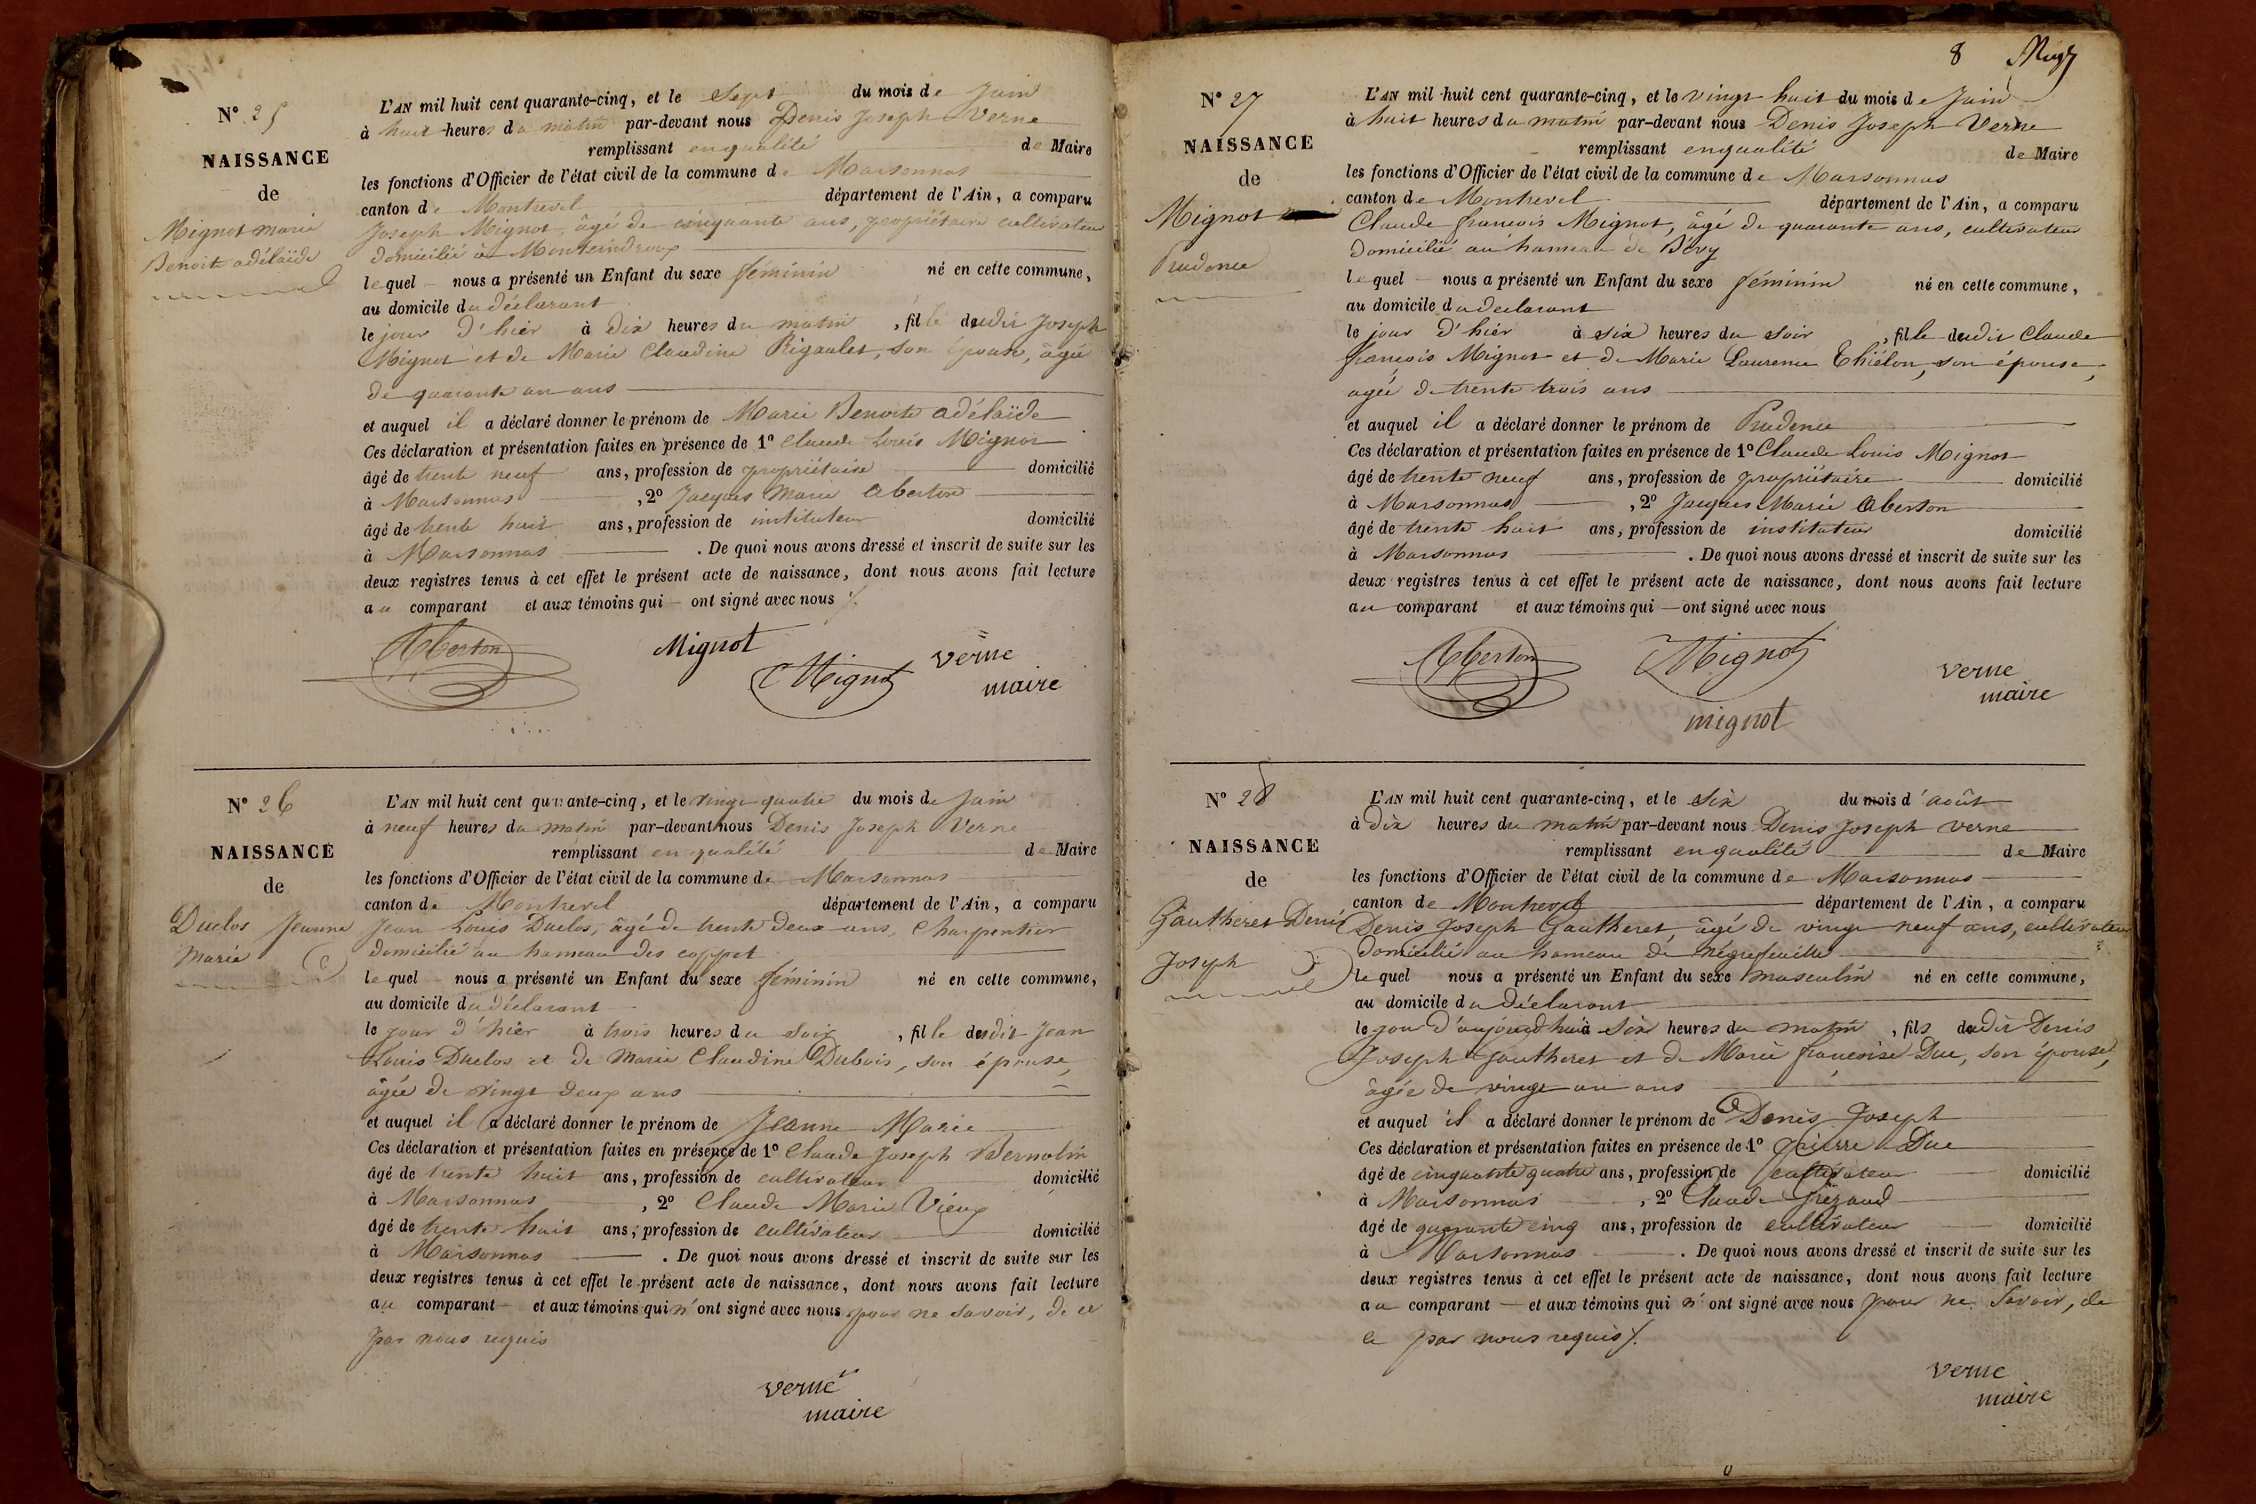 N° 25
NAISSANCE
de
Mignot marie
Benoite adélaïde
L'AN mil huit cent quarante-cinq, et le Sept du mois de Juin
à huit heures du matin par-devant nous Denis Joseph Verne
remplissant en qualité de Maire
les fonctions d'Officier de l'état civil de la commune de Marsonnas
canton de Montrevel département de l'Ain, a comparu
Joseph Mignot, âgé de cinquante ans, propriétaire cultivateur
domicilié à
lequel nous a présenté un Enfant du sexe féminin né en cette commune,
au domicile du déclarant
le jour d'hier à dix heures du matin, fille dudit Joseph
Mignot et de Marie Claudine Rigaulet, son épouse, âgée
de quarante un ans
et auquel il a déclaré donner le prénom de Marie Benoite adélaïde
Ces déclaration et présentation faites en présence de 1° Claude Louis Mignot
âgé de trente neuf ans, profession de propriétaire domicilié
à Marsonnas, 2° Jacques Marie Aberton
âgé de trente huit ans, profession de instituteur domicilié
à Marsonnas. De quoi nous avons dressé et inscrit de suite sur les
deux registres tenus à cet effet le présent acte de naissance, dont nous avons fait lecture
au comparant et aux témoins qui ont signé avec nous ⁒.
Aberton Mignot Mignot verne
maire
N° 26
NAISSANCE
de
Duclos Jeanne
Marie
L'AN mil huit cent quarante-cinq, et le vingt quatre du mois de Juin
à neuf heures du matin par-devant nous Denis Joseph Verne
remplissant en qualité de Maire
les fonctions d'Officier de l'état civil de la commune de Marsonnas
canton de Montrevel département de l'Ain, a comparu
Jean Louis Duclos, âgé de trente deux ans, Charpentier
domicilié au hameau des coppet
lequel nous a présenté un Enfant du sexe féminin né en cette commune,
au domicile du déclarant
le jour d'hier à trois heures du soir, fille dudit Jean
Louis Duclos et de Marie Claudine Dubois, son épouse,
âgée de vingt deux ans
et auquel il a déclaré donner le prénom de Jeanne Marie
Ces déclaration et présentation faites en présence de 1° Claude Joseph Bernolin
âgé de trente huit ans, profession de cultivateur domicilié
à Marsonnas, 2° Claude Marie Vieux
âgé de trente huit ans, profession de cultivateur domicilié
à Marsonnas. De quoi nous avons dressé et inscrit de suite sur les
deux registres tenus à cet effet le présent acte de naissance, dont nous avons fait lecture
au comparant et aux témoins qui n'ont signé avec nous pour ne savoir, de ce
par nous requis
verne
maire
8
N° 27
NAISSANCE
de
Mignot
Prudence
L'AN mil huit cent quarante-cinq, et le vingt huit du mois de Juin
à huit heures du matin par-devant nous Denis Joseph Verne
remplissant en qualité de Maire
les fonctions d'Officier de l'état civil de la commune de Marsonnas
canton de Montrevel département de l'Ain, a comparu
Claude françois Mignot, âgé de quarante ans, cultivateur
Domicilié au hameau de Bévy
lequel nous a présenté un Enfant du sexe féminin né en cette commune,
au domicile du declarant
le jour d'hier à six heures du soir, fille dudit Claude
françois Mignot et de Marie Laurence Thiélon, son épouse,
agée de trente trois ans
et auquel il a déclaré donner le prénom de Prudence
Ces déclaration et présentation faites en présence de 1° Claude Louis Mignot
âgé de trente neuf ans, profession de propriétaire domicilié
à Marsonnas, 2° Jacques Marie Aberton
âgé de trente huit ans, profession de instituteur domicilié
à Marsonnas. De quoi nous avons dressé et inscrit de suite sur les
deux registres tenus à cet effet le présent acte de naissance, dont nous avons fait lecture
au comparant et aux témoins qui ont signé avec nous
Aberton Mignot verne
maire
mignot
N° 28
NAISSANCE
de
Gautheret Denis
Joseph
L'AN mil huit cent quarante-cinq, et le Six du mois d'août
à Dix heures du matin par-devant nous Denis Joseph verne
remplissant en qualité de Maire
les fonctions d'Officier de l'état civil de la commune de Marsonnas
canton de Montrevel département de l'Ain, a comparu
Denis Joseph Gautheret, âgé de vingt neuf ans, cultivateur
domicilié au hameau de Négrefeuille
lequel nous a présenté un Enfant du sexe masculin né en cette commune,
au domicile du déclarant
le jour d'aujourd'hui à six heures du matin, fils dudit Denis
Joseph Gautheret et de Marie françoise Duc, son épouse,
âgée de vingt un ans
et auquel il a déclaré donner le prénom de Denis Joseph
Ces déclaration et présentation faites en présence de 1° pierre Duc
âgé de cinquante quatre ans, profession de cultivateur domicilié
à Marsonnas, 2° Claude
âgé de quarante cinq ans, profession de cultivateur domicilié
à Marsonnas. De quoi nous avons dressé et inscrit de suite sur les
deux registres tenus à cet effet le présent acte de naissance, dont nous avons fait lecture
au comparant et aux témoins qui n'ont signé avec nous pour ne Savoir, de
ce par nous requis ⁒.
verne
maire